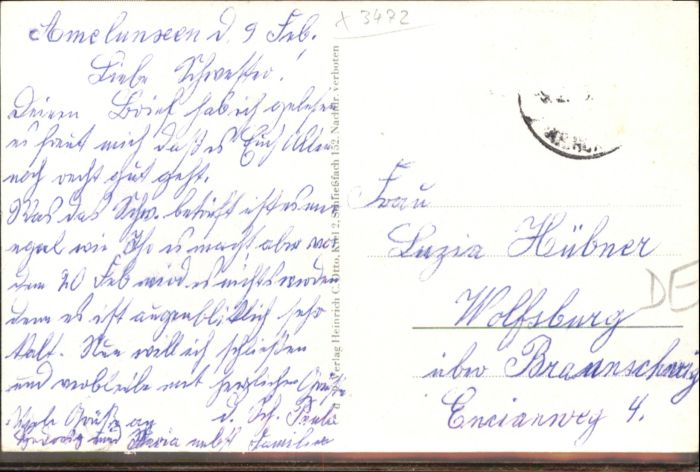 Amelunxen d. 9 Feb.
Liebe Schwester!
Deinen Brief hab ich gelesen
es freut mich daß es Euch Allen
noch recht gut geht.
Was das Schw. betrifft ist es mir
egal wie Ihr es macht aber vor
dem 20 Feb wird es nichts werden
denn es ist augenblicklich sehr
kalt. Nun will ich schließen
und verbleibe mit herzlichen Grüße
d. Sch. Paula
Viele Grüße an
Hedwig und Maria nebst Familien
x 3472
Verlag Heinrich C. Otto, Köln 2, Schließfach 152. Nachdr. verboten
Frau
Luzia Hübner
Wolfsburg
über Braunschweig
Encianweg 4.
DE